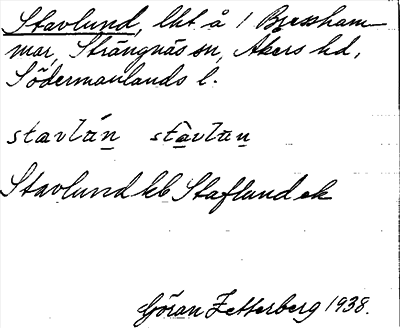 Stavlund, lht å 1 Bressham-
mar, Strängnäs sn, Åkers hd,
Södermanlands l.
stavlán̲ stàvlan̲
Stavlund kb Staflund ek
Göran Zetterberg 1938.